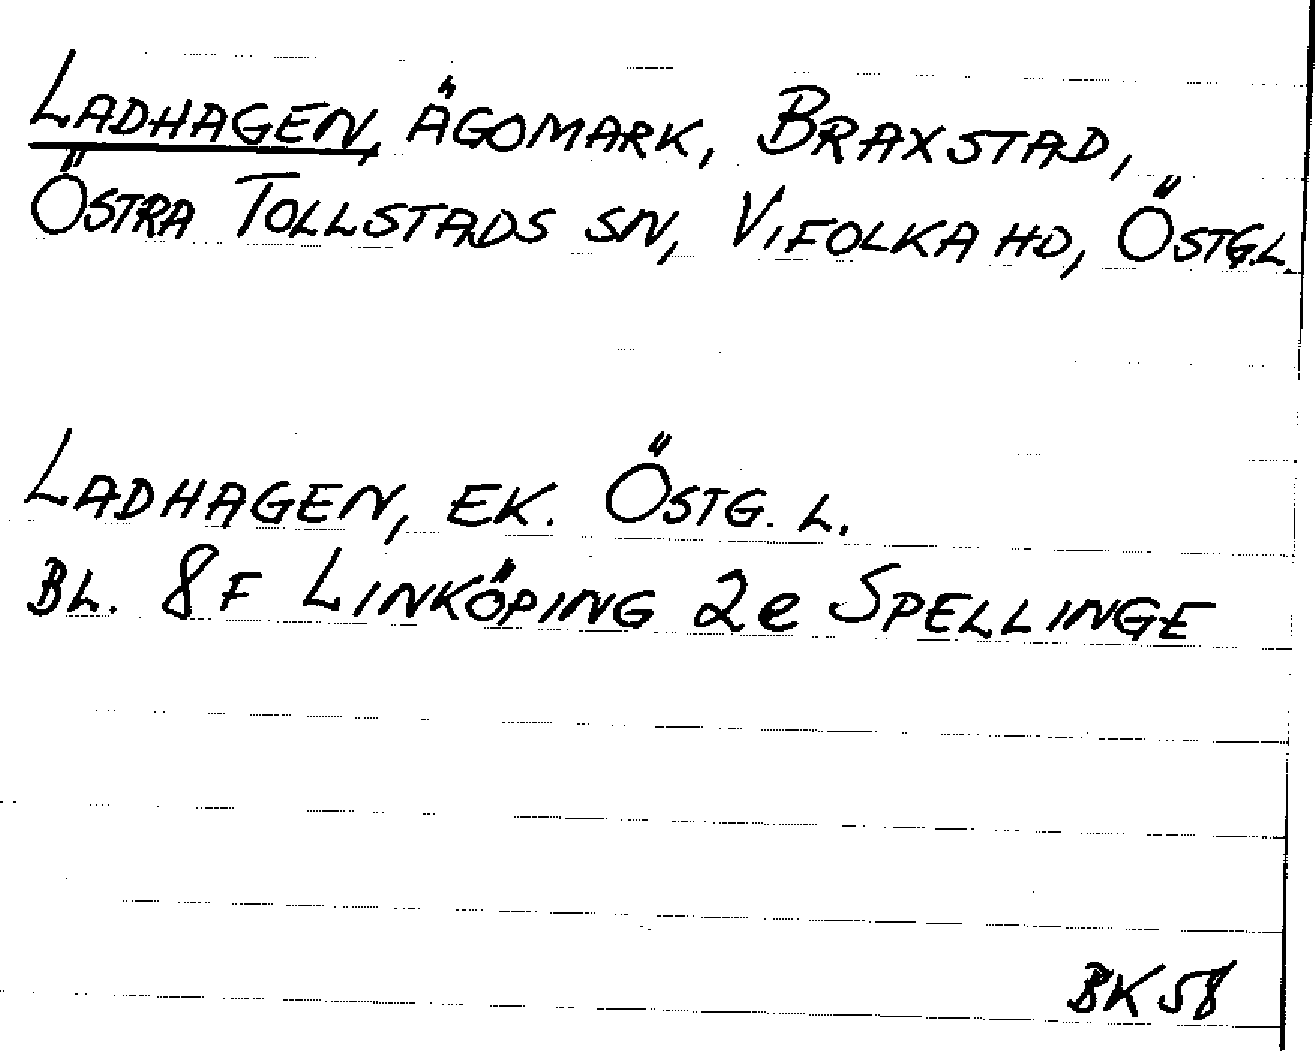 LADHAGEN, ÄGOMARK, BRAXSTAD,
ÖSTRA TOLLSTADS SN, VIFOLKA HD, ÖSTG.L.
LADHAGEN, EK. ÖSTG. L.
BL. 8F LINKÖPING 2e SPELLINGE
BK58